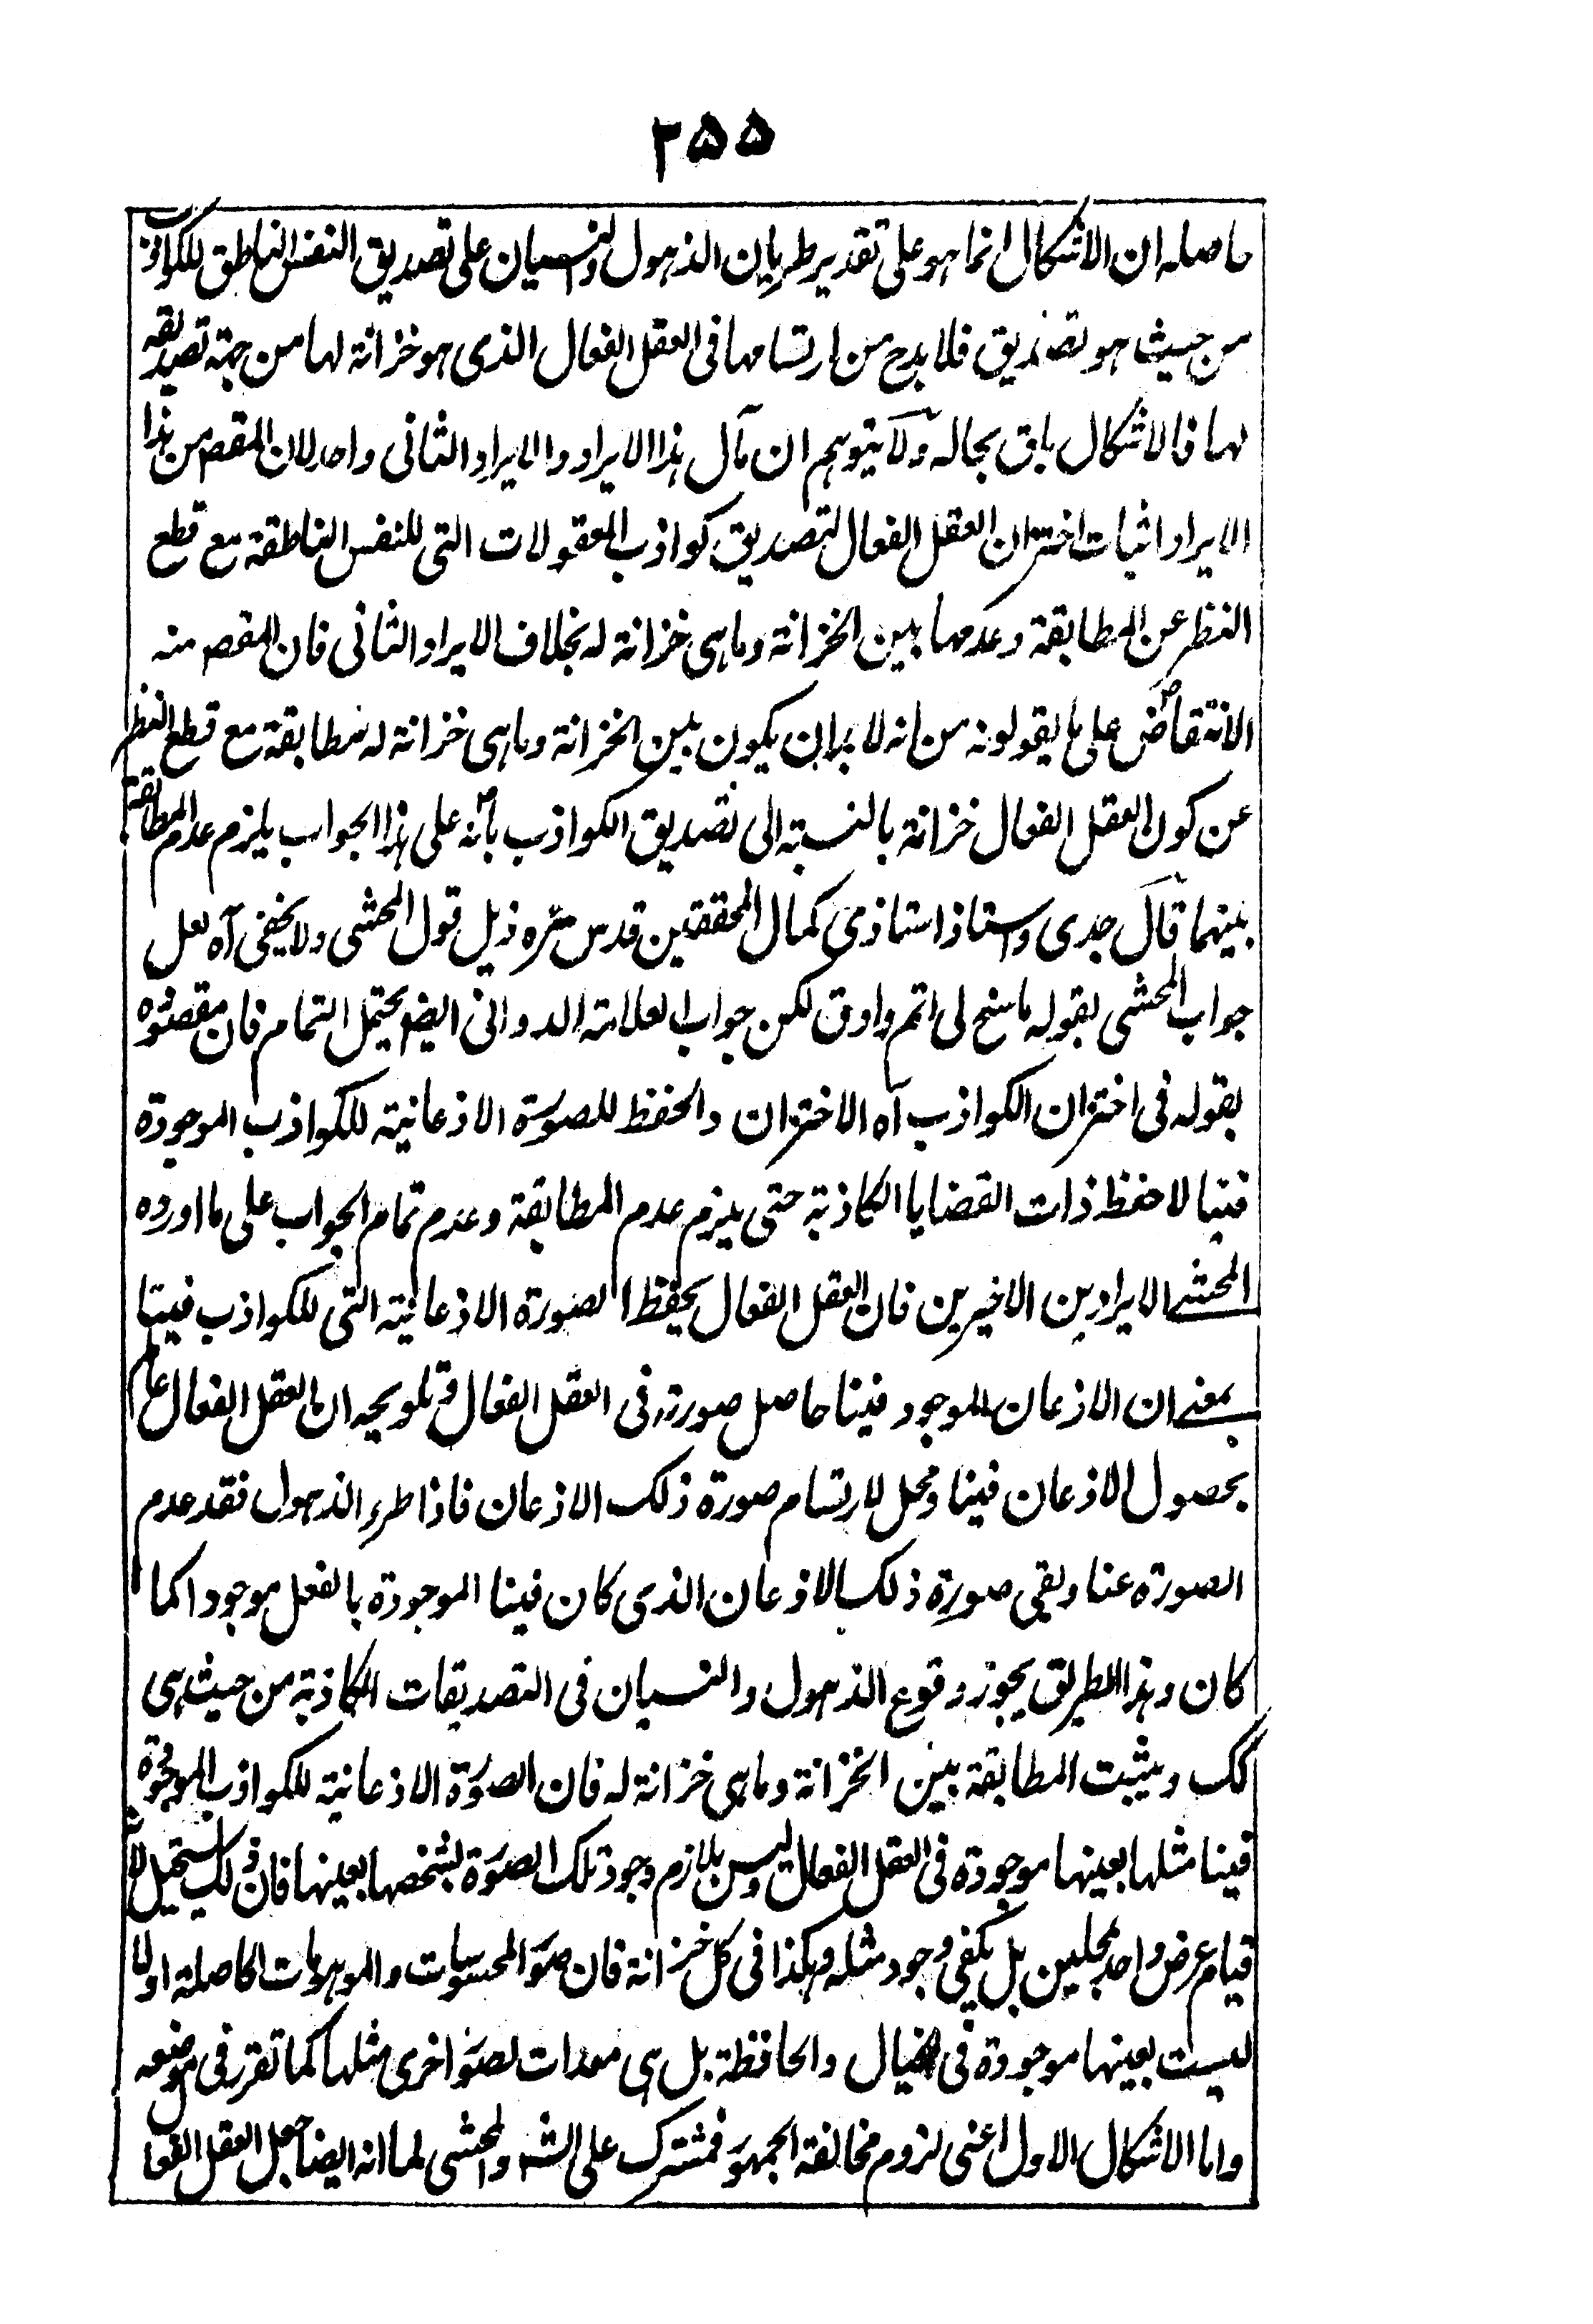 ٢٥٥
حاصله ان الاشكال انما هو على تقدير طريان الذهول والنسيان على تصديق النفس الناطق للكواذب
من حيث هو تصديق فلا بد ح من ارتسامها فى العقل الفعال الذى هو خزانة لها من جهة تصديقه
لها فالاشكال باق بحاله ولا يتوهم ان مآل هذا الايراد والايراد الثانى واحد لان المقصه من هذا
الايراد اثبات اختزان العقل الفعال لتصديق كواذب المعقولات التى للنفس الناطقة مع قطع
النظر عن المطابقة وعدمها بين الخزانة وما هى خزانة له بخلاف الايراد الثانى فان المقصه منه
الانتقاض على ما يقولونه من انه لا بد ان يكون بين الخزانة وما هى خزانة له مطابقة مع قطع النظر
عن كون العقل الفعال خزانة بالنسبة الى تصديق الكواذب بانه على هذا الجواب يلزم عدم المطابقة
بينهما قال جدى واستاذ استاذى كمال المحققين قدس سره ذيل قول المحشى ولا يخفى آه لعل
جواب المحشى بقوله ما سنح لى اتم واوق لكن جواب العلامة الدوانى ايضا يحتمل التمام فان مقصوده
بقوله فى اختزان الكواذب آه الاختزان والحفظ للصورة الاذعانية للكواذب الموجودة
فينا لا حفظ ذات القضايا الكاذبة حتى يلزم عدم المطابقة وعدم تمام الجواب على ما اورده
المحشى الايرادين الاخيرين فان العقل الفعال يحفظ الصورة الاذعانية التى للكواذب فينا
بمعنى ان الاذعان الموجود فينا حاصل صورته فى العقل الفعال وتلويحه ان العقل الفعال عالم
بحصول الاذعان فينا ومحل لارتسام صورة ذلك الاذعان فاذا طرء الذهول فقد عدم
الصورة عنا وبقى صورة ذلك الاذعان الذى كان فينا الموجودة بالفعل موجودا كما
كان وبهذا الطريق يجوز وقوع الذهول والنسيان فى التصديقات الكاذبة من حيث هى
كك ويثبت المطابقة بين الخزانة وما هى خزانة له فان الصورة الاذعانية للكواذب الموجودة
فينا مثلها بعينها موجودة فى العقل الفعال وليس بلازم وجود تلك الصورة بشخصها بعينها فان ذلك يستحيل لانه
قيام عرض واحد بمحلين بل يكفى وجود مثله وهكذا فى كل خزانة فان صور المحسوسات والموهومات الحاصلة اولا
ليست بعينها موجودة فى الخيال والحافظة بل هى معدات لصور اخرى مثلها كما تقرر فى موضعه
واما الاشكال الاول اعنى لزوم مخالفة الجمهور فمشترك على الشه والمحشى لما انه ايضا جعل العقل الفعال